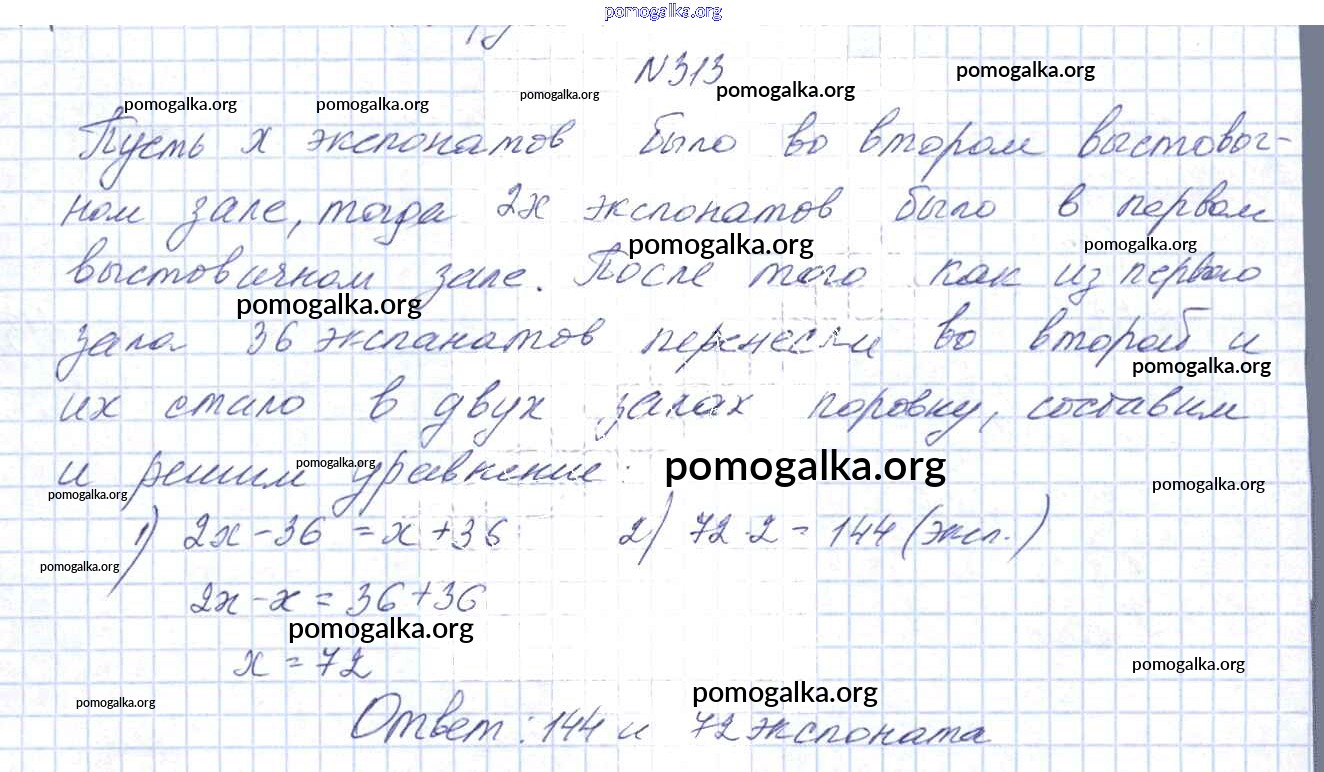 pomogalka.org
N 313
pomogalka.org
pomogalka.org
pomogalka.org
pomogalka.org
pomogalka.org
Пусть x экспонатов было во втором выстовоч-
ном зале, тогда 2x экспонатов было в первом
pomogalka.org
pomogalka.org
выстовичном зале. После того как из первого
pomogalka.org
зала 36 экспанатов перенесли во второй и
pomogalka.org
их стало в двух залах поровну, составим
и решим уравнение:
pomogalka.org
pomogalka.org
pomogalka.org
pomogalka.org
1) 2x - 36 = x + 36 2) 72 · 2 = 144 (эксп.)
pomogalka.org
2x - x = 36 + 36
pomogalka.org
x = 72
pomogalka.org
pomogalka.org
pomogalka.org
Ответ: 144 и 72 экспоната